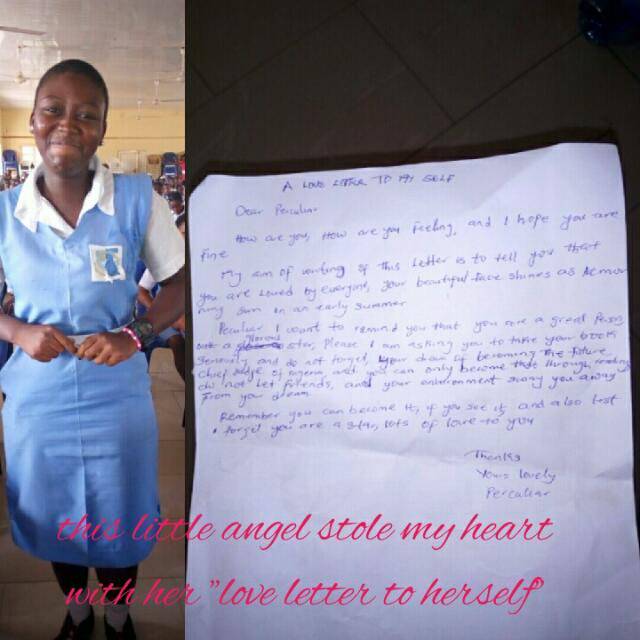 A LOVE LETTER TO MY SELF
Dear Perculiar
How are you, How are you feeling, and I hope you are
fine
My aim of writing of this letter is to tell you that
you are loved by everyone, your beautiful face shines as
sun in an early summer
Perculiar I want to remind you that you are a great
a star, Please I am asking you to take your book
and do not forget, your dream of becoming the future
chief judge of and you can only become that through
do not let friends, and your you away
from your dream
Remember you can become it, if you see it, and also lest
forget you are a star, lots of love to you
Thanks
Yours lovely
Perculiar
this little angel stole my heart
with her "love letter to herself"